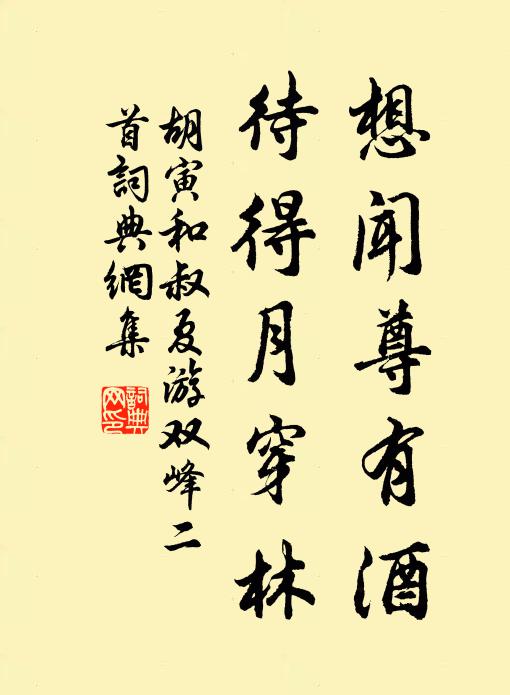 想闻尊有酒
待得月穿林
胡寅和叔夏游双峰二
首词典網集
詞典
网印